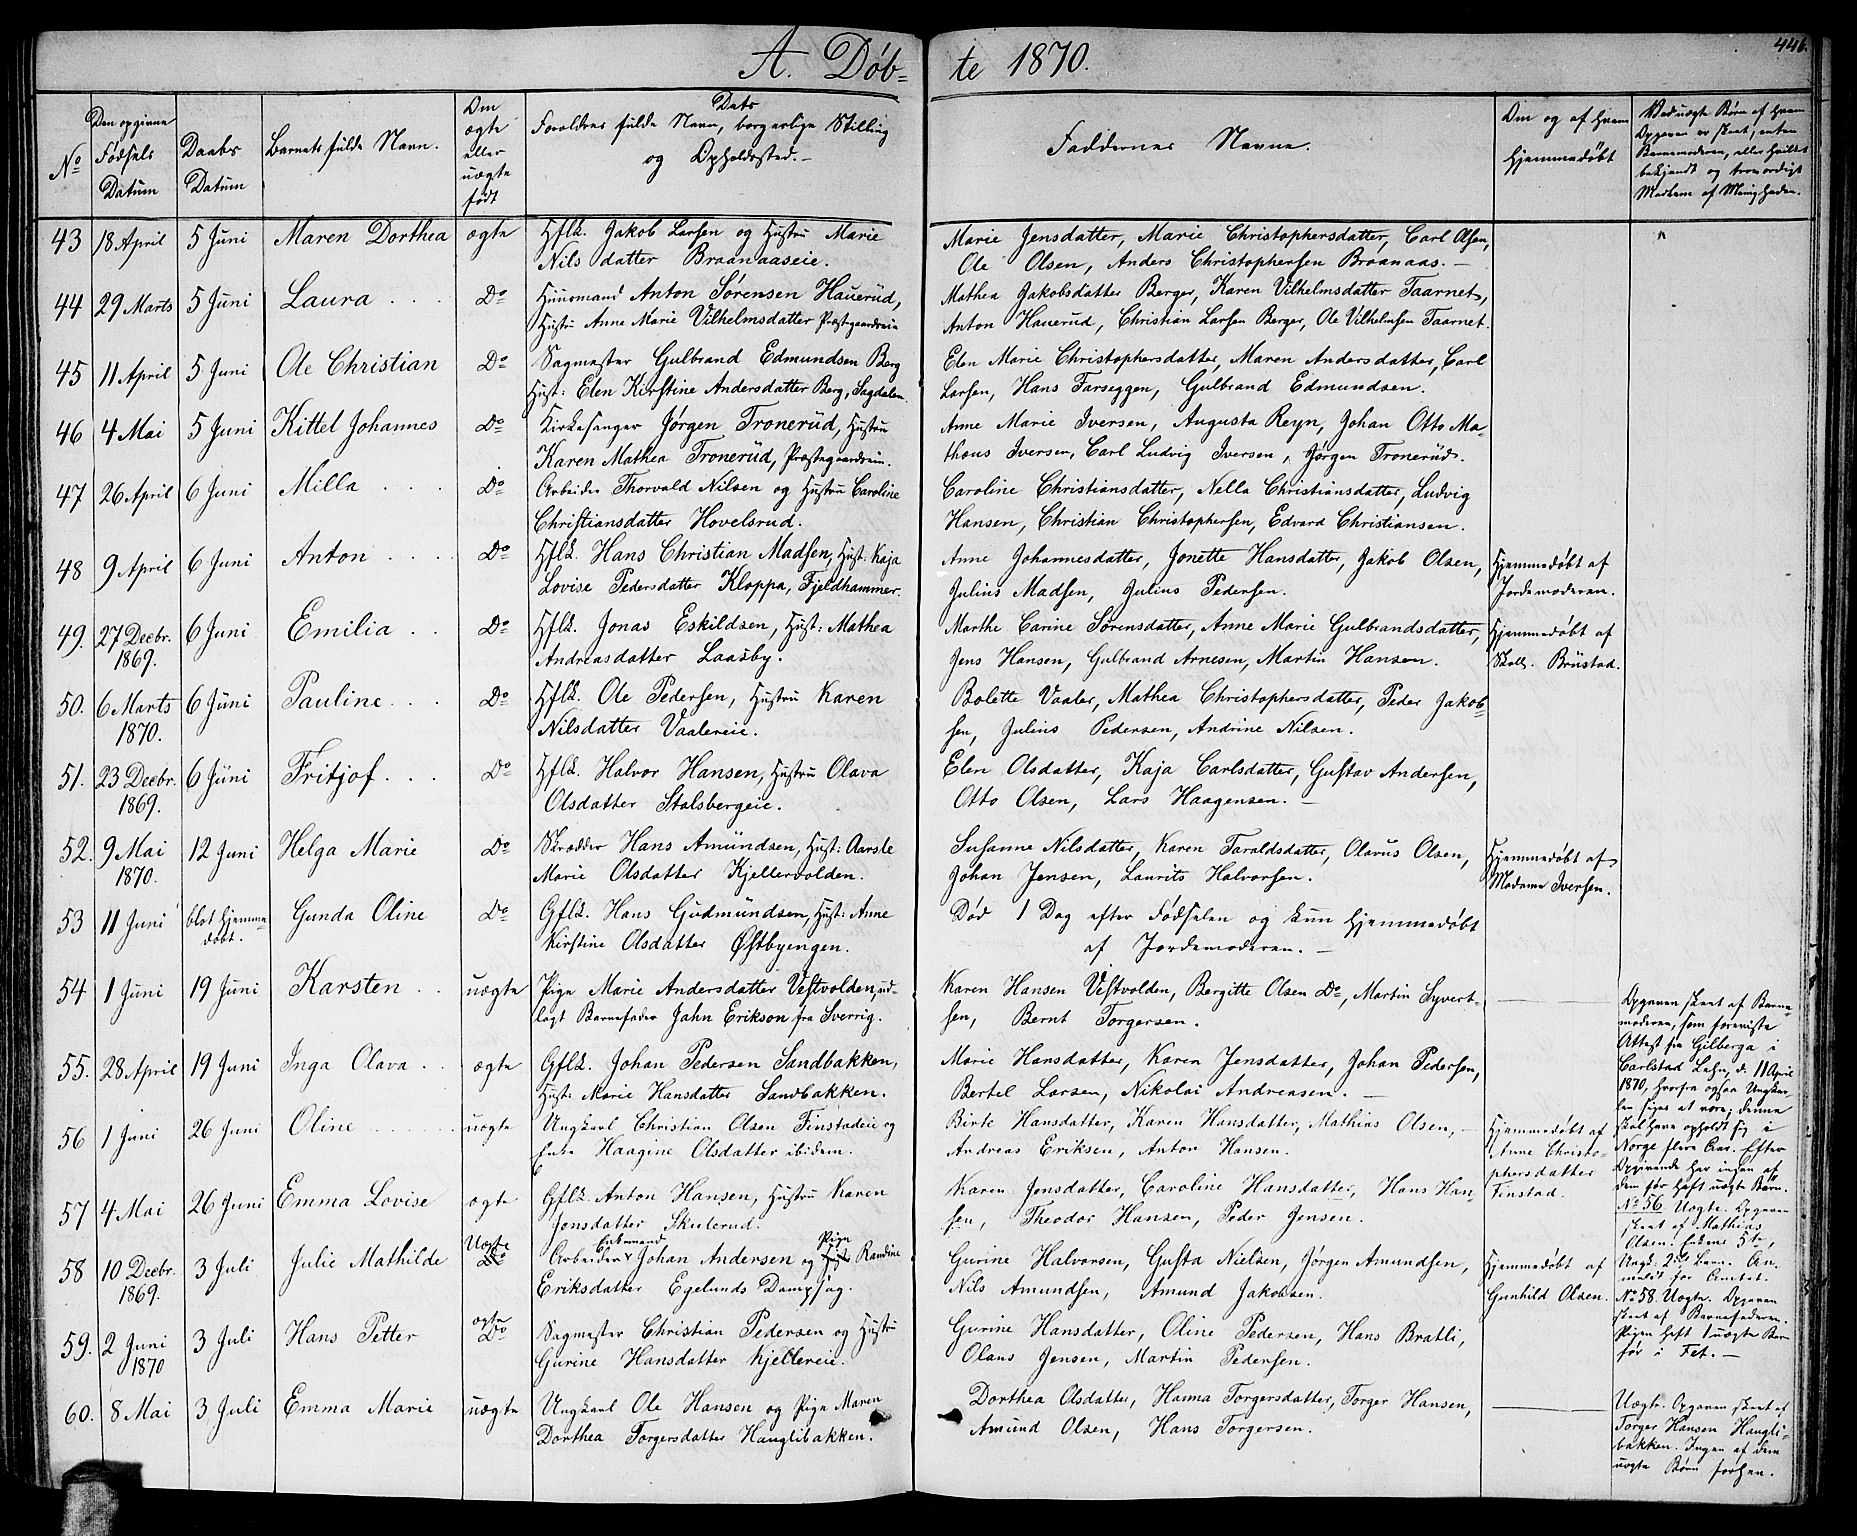 446.
A. Døb- te 1870.
No
Den opgivne
Fødsels
Datum
Daabs
Datum
Barnets fulde Navn.
Om
ægte
eller
uægte
født
Dets
Forældres fulde Navn, borgerlige Stilling
og Opholdssted.
Faddernes Navne.
Om og af hvem
hjemmedøbt
Ved uægte Børn af hvem
Opgaven er skeet, enten
Barnemoderen, eller hvilket
bekjendt og troværdigt
Medlem af Menigheden.
43 18 April 5 Juni Maren Dorthea ægte Hflk. Jakob Larsen og Hustru Marie Marie Jensdatter, Marie Christophersdatter, Carl Olsen,
Nils datter Braanaaseie. Ole Olsen, Anders Christophersen Braanaas.
44 29 Marts 5 Juni Laura Do Huusmand Anton Sørensen Hauerud, Mathea Jakobsdatter Berger, Karen Vilhelmsdatter Taarnet,
Hustru Anne Marie Vilhelmsdatter Præstegaardseie Anton Hauerud, Christian Larsen Berger, Ole Vilhelmsen Taarnet.
45 11 April 5 Juni Ole Christian Do Sagmester Gulbrand Edmundsen Berg Elen Marie Christophersdatter, Maren Andersdatter, Carl
Hust: Elen Kirstine Andersdatter Berg, Sagdalen. Larsen, Hans Farseggen, Gulbrand Edmundsen.
46 4 Mai 5 Juni Kittel Johannes Do Kirkesanger Jørgen Tronerud, Hustru Anne Marie Iversen, Augusta Reyn, Johan Otto Ma-
Karen Mathea Tronerud, Præstegaardseie. thæus Iversen, Carl Ludvig Iversen, Jørgen Tronerud.
47 26 April 6 Juni Milla Do Arbeider Thorvald Nilsen og Hustru Caroline Caroline Christiansdatter, Nella Christiansdatter, Ludvig
Christiansdatter Hovelsrud. Hansen, Christian Christophersen, Edvard Christiansen.
48 9 April 6 Juni Anton Do Hflk. Hans Christian Madsen, Hust: Kaja Anne Johannesdatter, Jonette Hansdatter, Jakob Olsen, Hjemmedøbt af
Lovise Pedersdatter Kloppa, Fjeldhammer. Julius Madsen, Julius Pedersen. Jordemoderen.
49. 27 Decbr. 6 Juni Emilia Do Hflk. Jonas Eskildsen, Hust: Mathea Marthe Carine Sørensdatter, Anne Marie Gulbrandsdatter, Hjemmedøbt af
1869. Andreasdatter Laasby. Jens Hansen, Gulbrand Arnesen, Martin Hansen. Skoll. Brustad.
50. 6 Marts 6 Juni Pauline Do Hflk. Ole Pedersen, Hustru Karen Bolette Vaaler, Mathea Christophersdatter, Peder Jakob-
1870. Nilsdatter Vaalereie. sen, Julius Pedersen, Andrine Nilsen.
51. 23 Decbr. 6 Juni Fritjof Do Hflk. Halvor Hansen, Hustru Olava Elen Olsdatter, Kaja Carlsdatter, Gustav Andersen,
1869. Olsdatter Stalsbergeie. Otto Olsen, Lars Haagensen.
52. 9 Mai 12 Juni Helga Marie Do Skrædder Hans Amundsen, Hust: Aarste Susanne Nilsdatter, Karen Taraldsdatter, Olavus Olsen, Hjemmedøbt af
1870. Marie Olsdatter Kjellervolden. Johan Jensen, Laurits Halvorsen. Madame Iversen.
53 11 Juni blot hjemme- Gunda Oline Do Gflk. Hans Gudmundsen, Hust: Anne Død 1 Dag efter Fødselen og kun hjemmedøbt
døbt. Kirstine Olsdatter Østbyengen. af Jordemoderen.
54 1 Juni 19 Juni Karsten uægte Pige Marie Andersdatter Vestvolden, ud- Karen Hansen Vestvolden, Bergitte Olsen Do, Martin Syvert-
lagt Barnefader Jahn Erikson fra Sverrig. sen, Bernt Torgersen.
Opgaven skeet af Barne-
moderen, som foreviste
Attest fra Gilberga i
Carlstad Lehn, d. 11 April
1870, hvorfra ogsaa Ungkar-
len siges at være; denne
skal have opholdt sig i
Norge flere Aar. Efter
Opgivende har ingen af
dem før haft uægte Børn.
55. 28 April 19 Juni Inga Olava ægte Gflk. Johan Pedersen Sandbakken, Marie Hansdatter, Karen Jensdatter, Johan Pedersen,
Hust: Marie Hansdatter Sandbakken. Bertel Larsen, Nikolai Andreasen.
56 1 Juni 26 Juni Oline uægte Ungkarl Christian Olsen Finstadeie og Birte Hansdatter, Karen Hansdatter, Mathias Olsen, Hjemmedøbt af
Enke Haagine Olsdatter ibidem. Andreas Eriksen, Anton Hansen. Anne Christo-
phersdatter
Finstad.
No 56. Uægte. Opgaven
skeet af Mathias
Olsen. Enkens 5te,
Ungk: 2det Barn. An-
meldt for Amtet.
57 4 Mai 26 Juni Emma Lovise ægte Gflk. Anton Hansen, Hustru Karen Karen Jensdatter, Caroline Hansdatter, Hans Han-
Jensdatter Skulerud. sen, Theodor Hansen, Peder Jensen.
58 10 Decbr. 3 Juli Julie Mathilde Uægte Do Arbeider Enkemand Johan Andersen og Hust Pige Randine Gurine Halvorsen, Gusta Nielsen, Jørgen Amundsen, Hjemmedøbt af
1869. Eriksdatter Egelunds Dampsag. Nils Amundsen, Amund Jakobsen. Gunhild Olsen.
No 58. Uægte. Opgaven
skeet af Barnefaderen.
Pigen haft 1 uægte Barn
før i Fet.
59. 2 Juni 3 Juli Hans Petter ægte Do Sagmester Christian Pedersen og Hustru Gurine Hansdatter, Oline Pedersen, Hans Bratli,
1870 Gurine Hansdatter Kjellereie. Olaus Jensen, Martin Pedersen.
60. 8 Mai 3 Juli Emma Marie uægte Ungkarl Ole Hansen og Pige Maren Dorthea Olsdatter, Hanna Torgersdatter, Torger Hansen,
Dorthea Torgersdatter Hauglibakken. Amund Olsen, Hans Torgersen.
Uægte. Opgaven skeet af
Torger Hansen Haugli-
bakken. Ingen af dem
uægte Børn forhen.